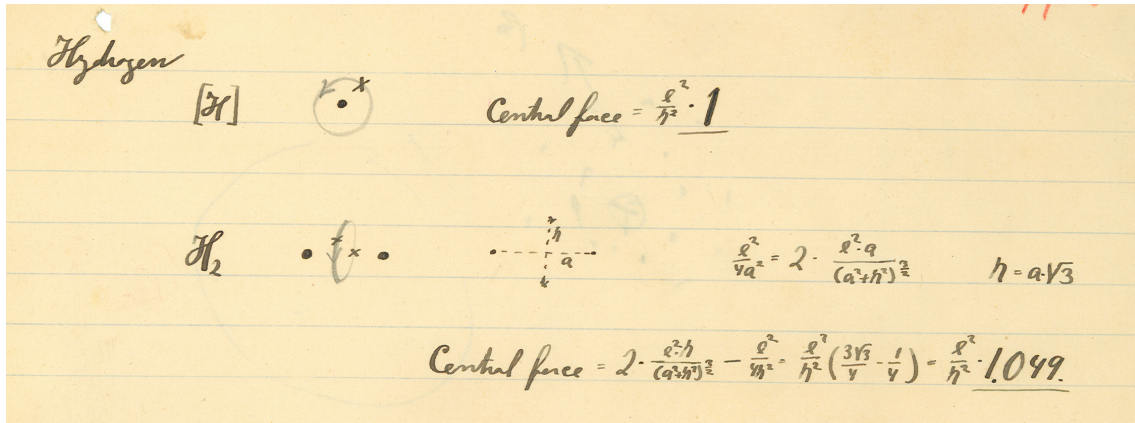 Hydrogen
[H] x Central force = e²/h² · 1
H₂ x x h a e²/4a² = 2 · e²·a/(a²+h²)^3/2 h = a·√3
Central force = 2 · e²·h/(a²+h²)^3/2 − e²/4h² = e²/h² (3√3/4 − 1/4) = e²/h² · 1.049.